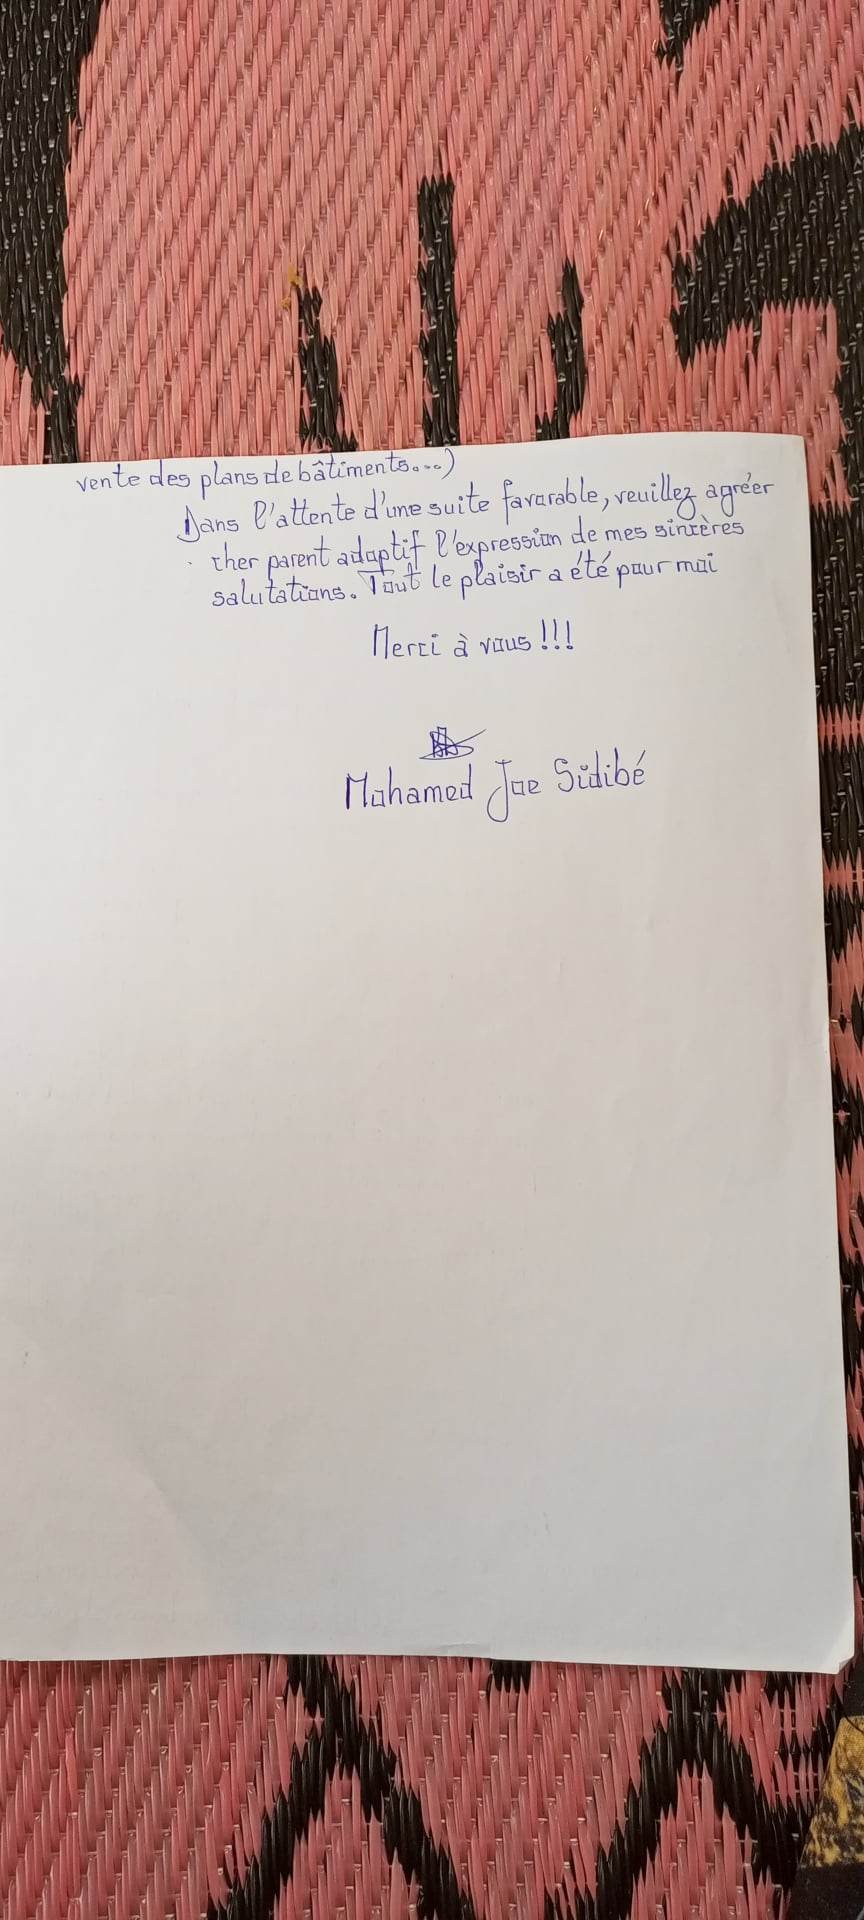 vente des plans de bâtiments...)
Dans l'attente d'une suite favorable, veuillez agréer
cher parent adoptif l'expression de mes sincères
salutations. Tout le plaisir a été pour moi
Merci à vous !!!
Mohamed Joe Sidibé